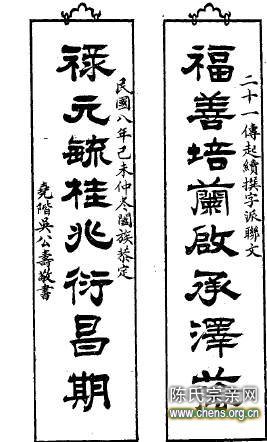 二十一傳起續撰字派聯文
福善培蘭啟承澤
民國八年己未仲冬闔族恭定
祿元毓桂兆衍昌期
堯階吳公壽敬書
陈氏宗亲网
www.chens.org.cn